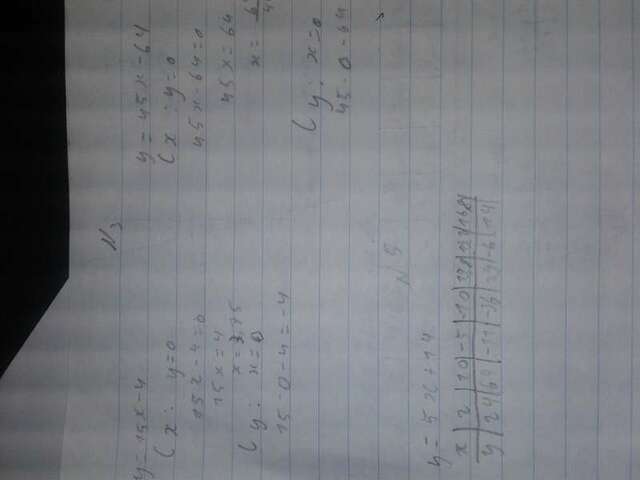 N3
y = 15x - 4
( x : y = 0
15x - 4 = 0
15x = 4
( y : x = 0
15 · 0 - 4 = -4
y = 45x - 64
( x : y = 0
45x - 64 = 0
45x = 64
x =
( y : x = 0
45 · 0 - 64
N 5
y = 5x + 14
x | 2 | 10 | -5 | -10
y | 24 | 64 | -11 | -36 | | -6 | 14